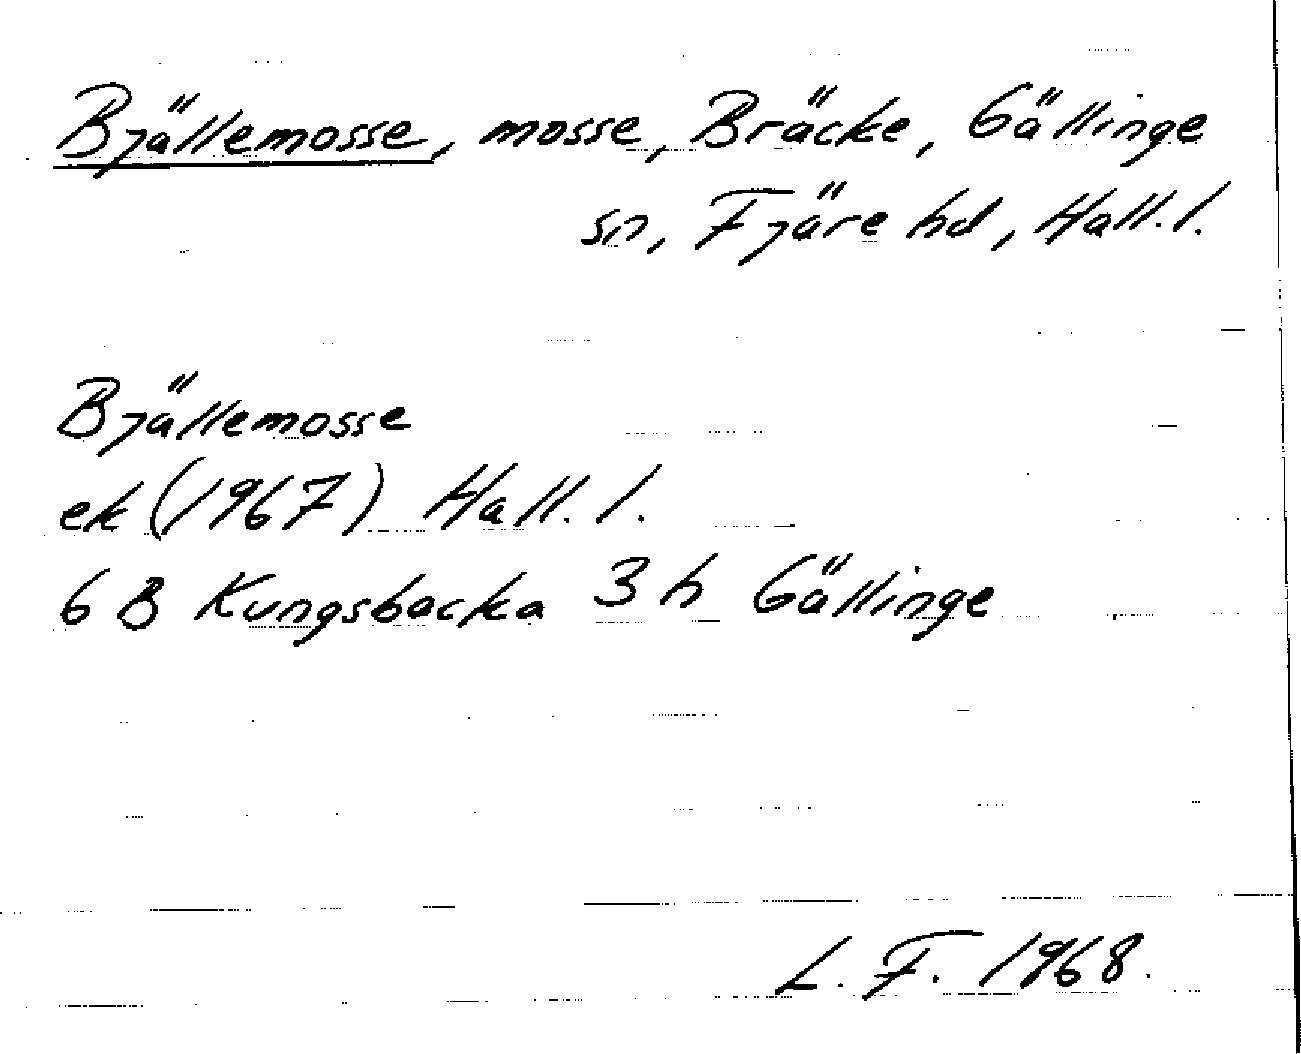 Bjällemosse, mosse, Bräcke, Gällinge
sn, Fjäre hd, Hall. l.
Bjällemosse
ek (1967) Hall. l.
6 B Kungsbacka 3 h Gällinge
L. F. 1968.